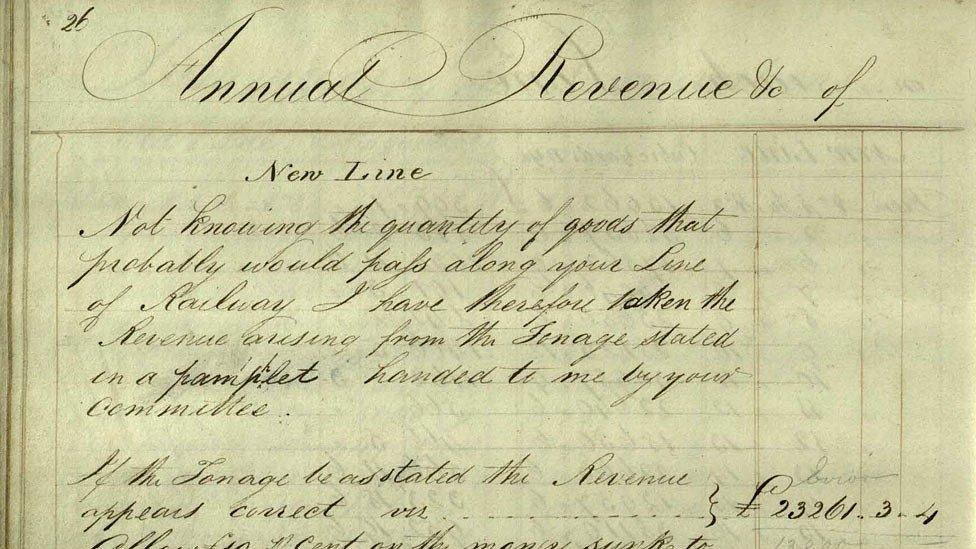 26
Annual Revenue &c of
New Line
Not knowing the quantity of goods that
probably would pass along your Line
of Railway I have therefore taken the
Revenue arising from the Tonage stated
in a pamplet handed to me by your
Committee.
If the Tonage be as stated the Revenue
appears correct viz . . . . . . . . . . } £ 23261 .. 3 .. 4
Allow £10 P Cent on the money sunk to